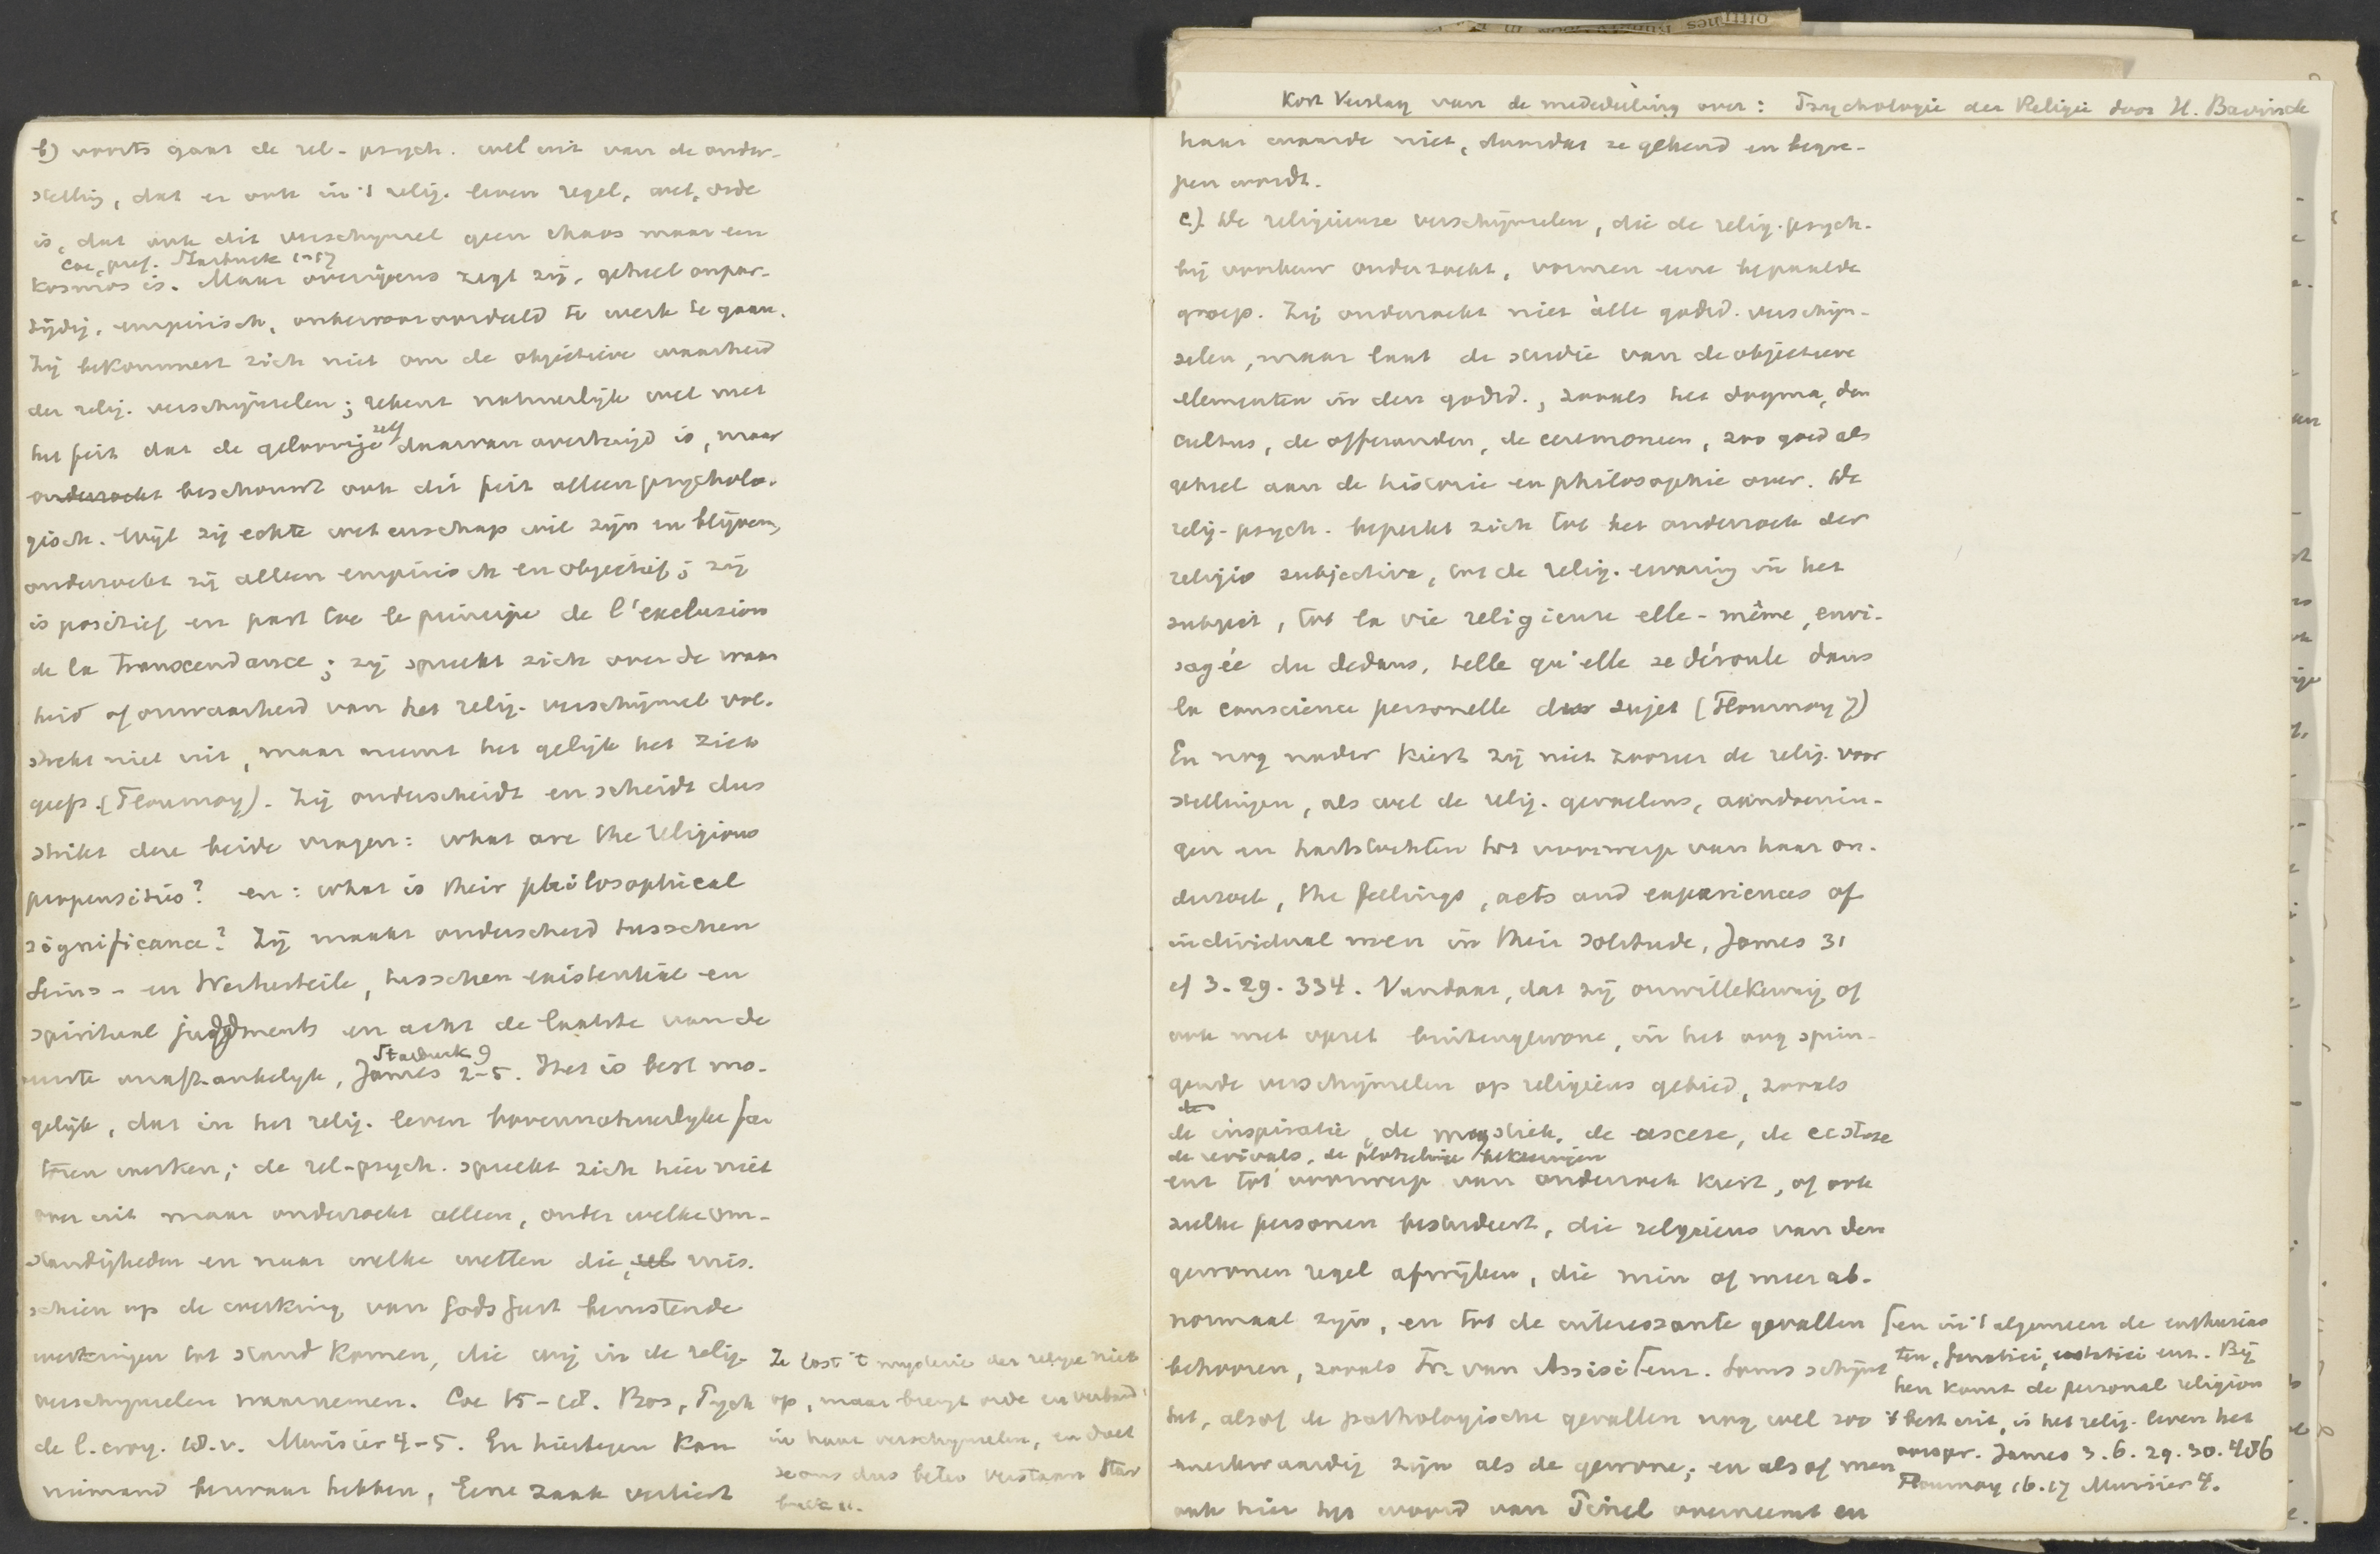 b) voorts gaat de rel-psych. wel uit van de onder-
stelling, dat er ook in 't relig. leven regel, wet, orde
is, dat ook dit verschijnsel geen chaos maar een
Coe, pref. Starbuck 1-17
kosmos is. Maar overigens zegt zij, geheel onpar-
tijdig, empirisch, onbevooroordeeld te werk te gaan.
Zij bekommert zich niet om de objectieve waarheid
der relig. verschijnselen; rekent natuurlijk wel met
het feit dat de geloovige zelf daarvan overtuigd is, maar
onderzoekt beschouwt ook dit feit alleen psycholo-
gisch. Wijl zij echte wetenschap wil zijn en blijven,
onderzoekt zij alleen empirisch en objectief; zij
is positief en past toe le principe de l'exclusion
de la transcendance; zij spreekt zich over de waar
heid of onwaarheid van het relig. verschijnsel vol-
strekt niet uit, maar neemt het gelijk het zich
geeft (Flournoy). Zij onderscheidt en scheidt dus
strikt deze beide vragen: what are the religious
propensities? en: what is their philosophical
significance? Zij maakt onderscheid tusschen
Seins- en Werturteile, tusschen existential en
spiritual judgments en acht de laatste van de
Starbuck 9
eerste onafhankelijk, James 2-5. Het is best mo-
gelijk, dat in het relig. leven bovennatuurlijke fac
toren werken; de rel-psych. spreekt zich hier niet
over uit maar onderzoekt alleen, onder welke om-
standigheden en naar welke wetten die, mis-
schien op de werking van Gods Geest berustende
werkingen tot stand komen, die wij in de relig.
verschijnselen waarnemen. Coe 15-18. Bos, Psych
de l. croy. 18.v. Murisier 4-5. En hiertegen kan
niemand bezwaar hebben, Eene zaak verliest
Ze lost 't mysterie der religie niet
op, maar brengt orde en verband
in haar verschijnselen, en doet
ze ons dus beter verstaan Star
buck 11.
Kort Verslag van de mededeeling over: Psychologie der Religie door H. Bavinck
haar waarde niet, doordat ze gekend en begre-
pen wordt.
c). De religieuze verschijnselen, die de relig. psych.
bij voorkeur onderzoekt, vormen eene bepaalde
groep. Zij onderzoekt niet àlle godsd. verschijn-
selen, maar laat de studie van de objectieve
elementen in den godsd., zooals het dogma, den
cultus, de offeranden, de ceremonien, zoo goed als
geheel aan de historie en philosophie over. De
relig-psych. beperkt zich tot het onderzoek der
religio subjectiva, tot de relig. ervaring in het
subject, tot la vie religieuse elle-même, envi-
sagée du dedans, telle qu'elle se déroule dans
la conscience personelle du sujet (Flournoy 7)
En nog nader kiest zij niet zoozeer de relig. voor
stellingen, als wel de relig. gevoelens, aandoenin-
gen en hartstochten tot voorwerp van haar on-
derzoek, the feelings, acts and experiences of
individual men in their solitude, James 31
cf 3. 29. 334. Vandaar, dat zij onwillekeurig of
ook met opzet buitengewone, in het oog sprin-
gende verschijnselen op religieus gebied, zooals
de inspiratie, de mystiek, de ascese, de ecstase
de revivals, de plotselinge bekeeringen
enz tot voorwerp van onderzoek kiest, of ook
zulke personen bestudeert, die religieus van den
gewonen regel afwijken, die min of meer ab-
normaal zijn, en tot de interessante gevallen
behooren, zooals Fr. van Assisi ⌈enz. Soms schijnt
het, alsof de pathologische gevallen nog wel zoo
merkwaardig zijn als de gewone; en alsof men
ook hier het woord van Teirel overneemt en
⌈en in 't algemeen de enthusias
ten, fanatici, ecstatici enz. Bij
hen komt de personal religion
't best uit, is het relig. leven het
oorspr. James 3. 6. 29. 30. 486
Flournoy 16. 17 Murisier 4.